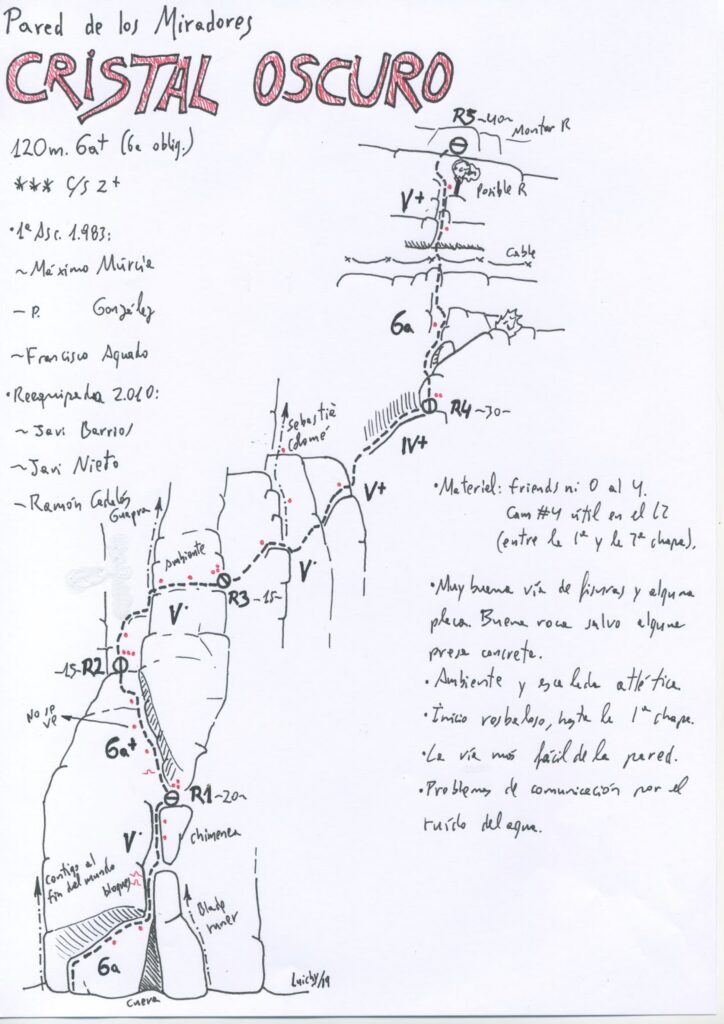 Pared de los Miradores
CRISTAL OSCURO
120m. 6a+ (6a oblig.)
*** C/S 2+
• 1ª Asc. 1.983:
~ Máximo Múrcia
- P. González
~ Francisco Aguado
• Reequipada 2.010:
~ Javi Barrios
~ Javi Nieto
~ Ramón
Guapra
R5 ~40~
Montar R
Posible R
V+
Cable
6a
R4 ~30~
IV+
Sebastià
Colomé
V+
V·
Ambiente
R3 ~15~
V·
~15~ R2
No se
ve
6a+
R1 ~20~
V·
chimenea
contigo al
fin del mundo
bloques
Blade
runner
6a
cueva
Luichy/19
• Material: friends nº 0 al 4.
Cam #4 útil en el L2
(entre la 1ª y la 2ª chapa).
• Muy buena vía de fisuras y alguna
placa. Buena roca salvo alguna
presa concreta.
• Ambiente y escalada atlética
• Inicio resbaloso, hasta la 1ª chapa.
• La vía más fácil de la pared.
• Problemas de comunicación por el
ruido del agua.